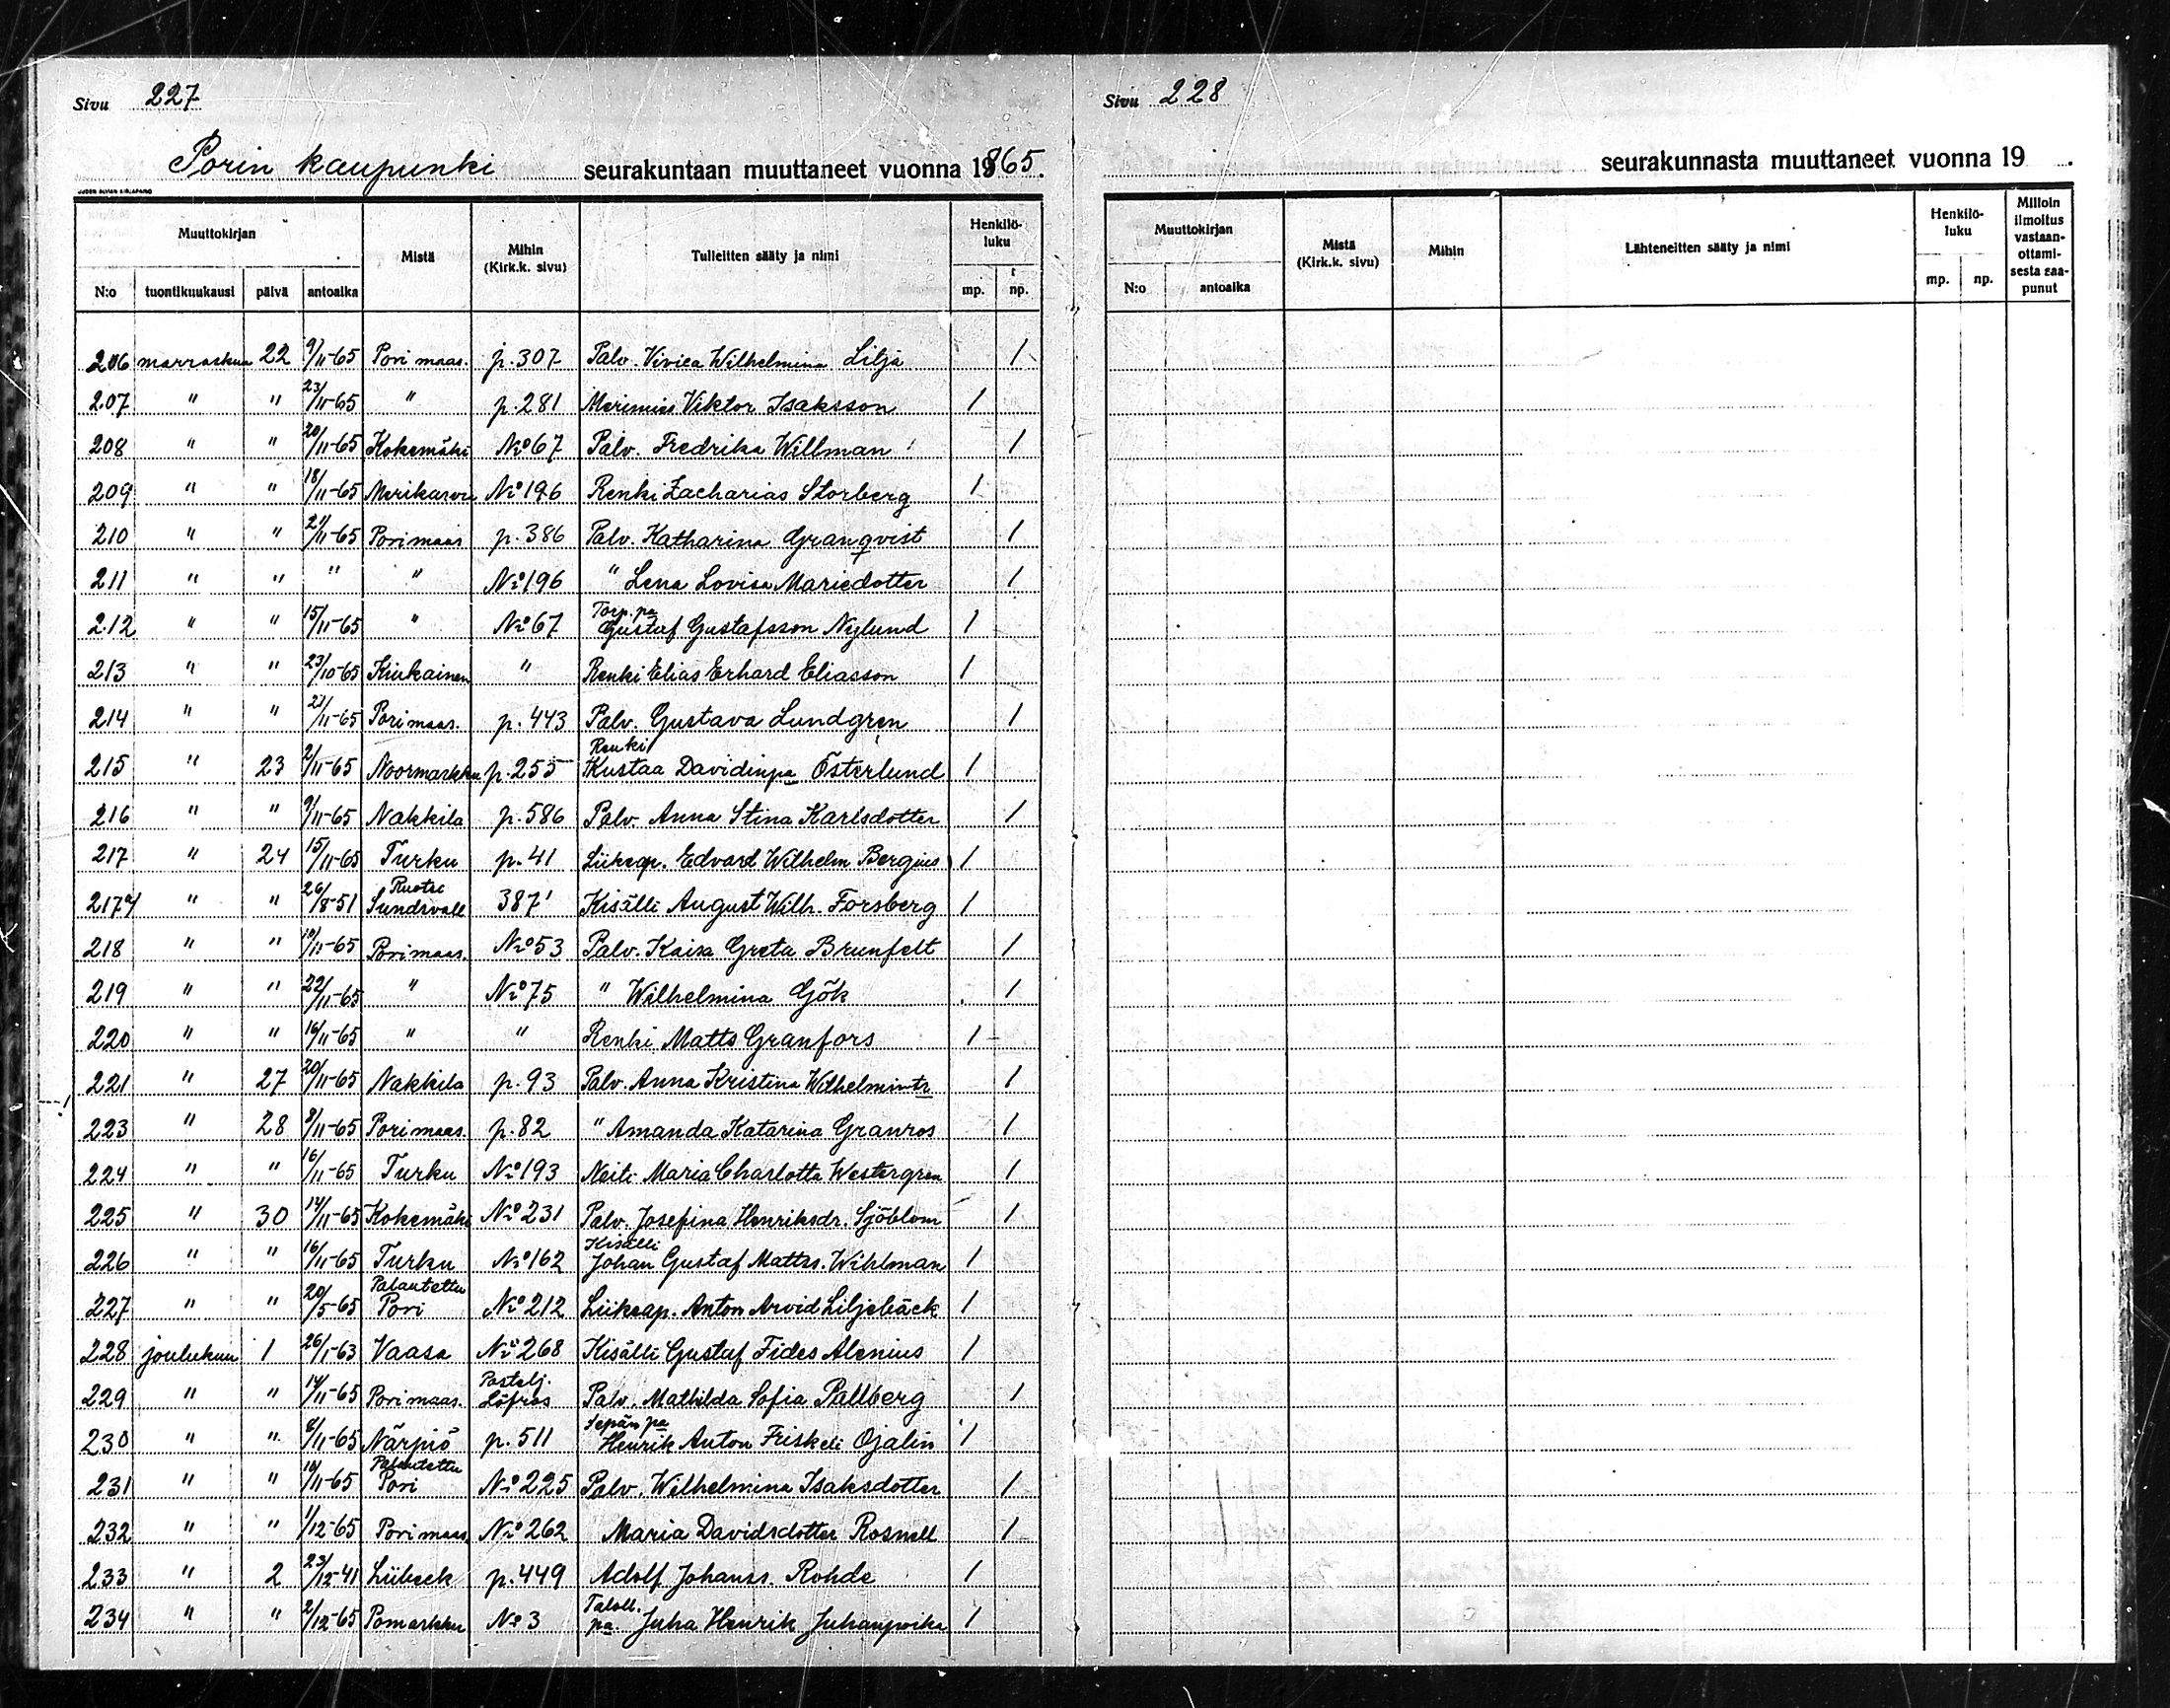 Sivu 227
Porin kaupunki seurakuntaan muuttaneet vuonna 1865.
Muuttokirjan Mistä Mihin (Kirk.k. sivu) Tulleitten sääty ja nimi Henkilö-luku
N:o tuontikuukausi päivä antoaika mp. np.
206 marraskuu 22 9/11-65 Pori maas. p.307 Palv. Vivica Wilhelmina Lilja 1
207 " " 23/11-65 " p.281 Merimies Viktor Isaksson 1
208 " " 20/11-65 Kokemäki No 67 Palv. Fredrika Willman 1
209 " " 18/11-65 Merikarvia No 196 Renki Zacharias Storberg 1
210 " " 21/11-65 Pori maas p.386 Palv. Katharina Granqvist 1
211 " " " " No 196 " Lena Lovisa Mariedotter 1
212 " " 15/11-65 " No 67 Torp. pa Gustaf Gustafsson Nylund 1
213 " " 23/10-65 Kiukainen " Renki Elias Erhard Eliasson 1
214 " " 21/11-65 Pori maas. p.443 Palv. Gustava Lundgren 1
215 " 23 2/11-65 Noormarkku p.255 Renki Kustaa Davidinpa Österlund 1
216 " " 9/11-65 Nakkila p.586 Palv. Anna Stina Karlsdotter 1
217 " 24 15/11-65 Turku p.41 Liikeap. Edvard Wilhelm Bergius 1
217a/ " " 26/8-51 Ruotsi Sundsvall 387 Kisälli August Wilh. Forsberg 1
218 " " 10/11-65 Pori maas. No 53 Palv. Kaisa Greta Brunfelt 1
219 " " 22/11-65 " No 75 " Wilhelmina Gök 1
220 " " 16/11-65 " " Renki Matts Granfors 1
221 " 27 20/11-65 Nakkila p.93 Palv. Anna Kristina Wilhelmintr 1
223 " 28 8/11-65 Pori maas. p.82 " Amanda Katarina Granros 1
224 " " 16/11-65 Turku No 193 Neiti Maria Charlotta Westergren 1
225 " 30 14/11-65 Kokemäki No 231 Palv. Josefina Henriksdr. Sjöblom 1
226 " " 16/11-65 Turku No 162 Kisälli Johan Gustaf Mattss. Wihlman 1
227 " " 20/5-65 Palautettu Pori No 212 Liikeap. Anton Arvid Liljebäck 1
228 joulukuu 1 26/1-63 Vaasa No 268 Kisälli Gustaf Fides Alenius 1
229 " " 14/11-65 Pori maas. Postilj. Löfros Palv. Mathilda Sofia Pallberg 1
230 " " 8/11-65 Närpiö p.511 Sepän pa Henrik Anton Friskeli Ojalin 1
231 " " 10/11-65 Palautettu Pori No 225 Palv. Wilhelmina Isaksdotter 1
232 " " 1/12-65 Pori maas. No 262 Maria Davidsdotter Rosnell 1
233 " 2 23/12-41 Lübeck p.449 Adolf Johanss. Rohde 1
234 " " 2/12-65 Pomarkku No 3 Taloll. pa. Juha Henrik Juhanpoika 1
Sivu 228
seurakunnasta muuttaneet vuonna 19 .
Muuttokirjan Mistä (Kirk.k. sivu) Mihin Lähteneitten sääty ja nimi Henkilö-luku Milloin ilmoitus vastaan-ottami-sesta saa-punut
N:o antoaika mp. np.